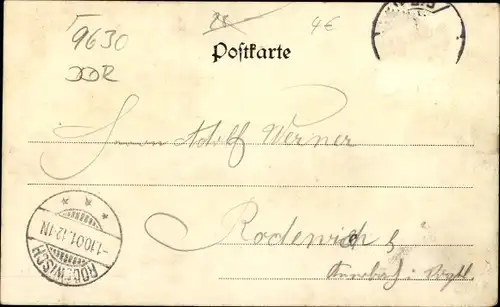 9630
DDR
25
4€
Postkarte
Herrn Adolf Werner
Rodewisch
Auerbach i. Vogtl.
RODEWISCH
-1.10 01. 12-1N